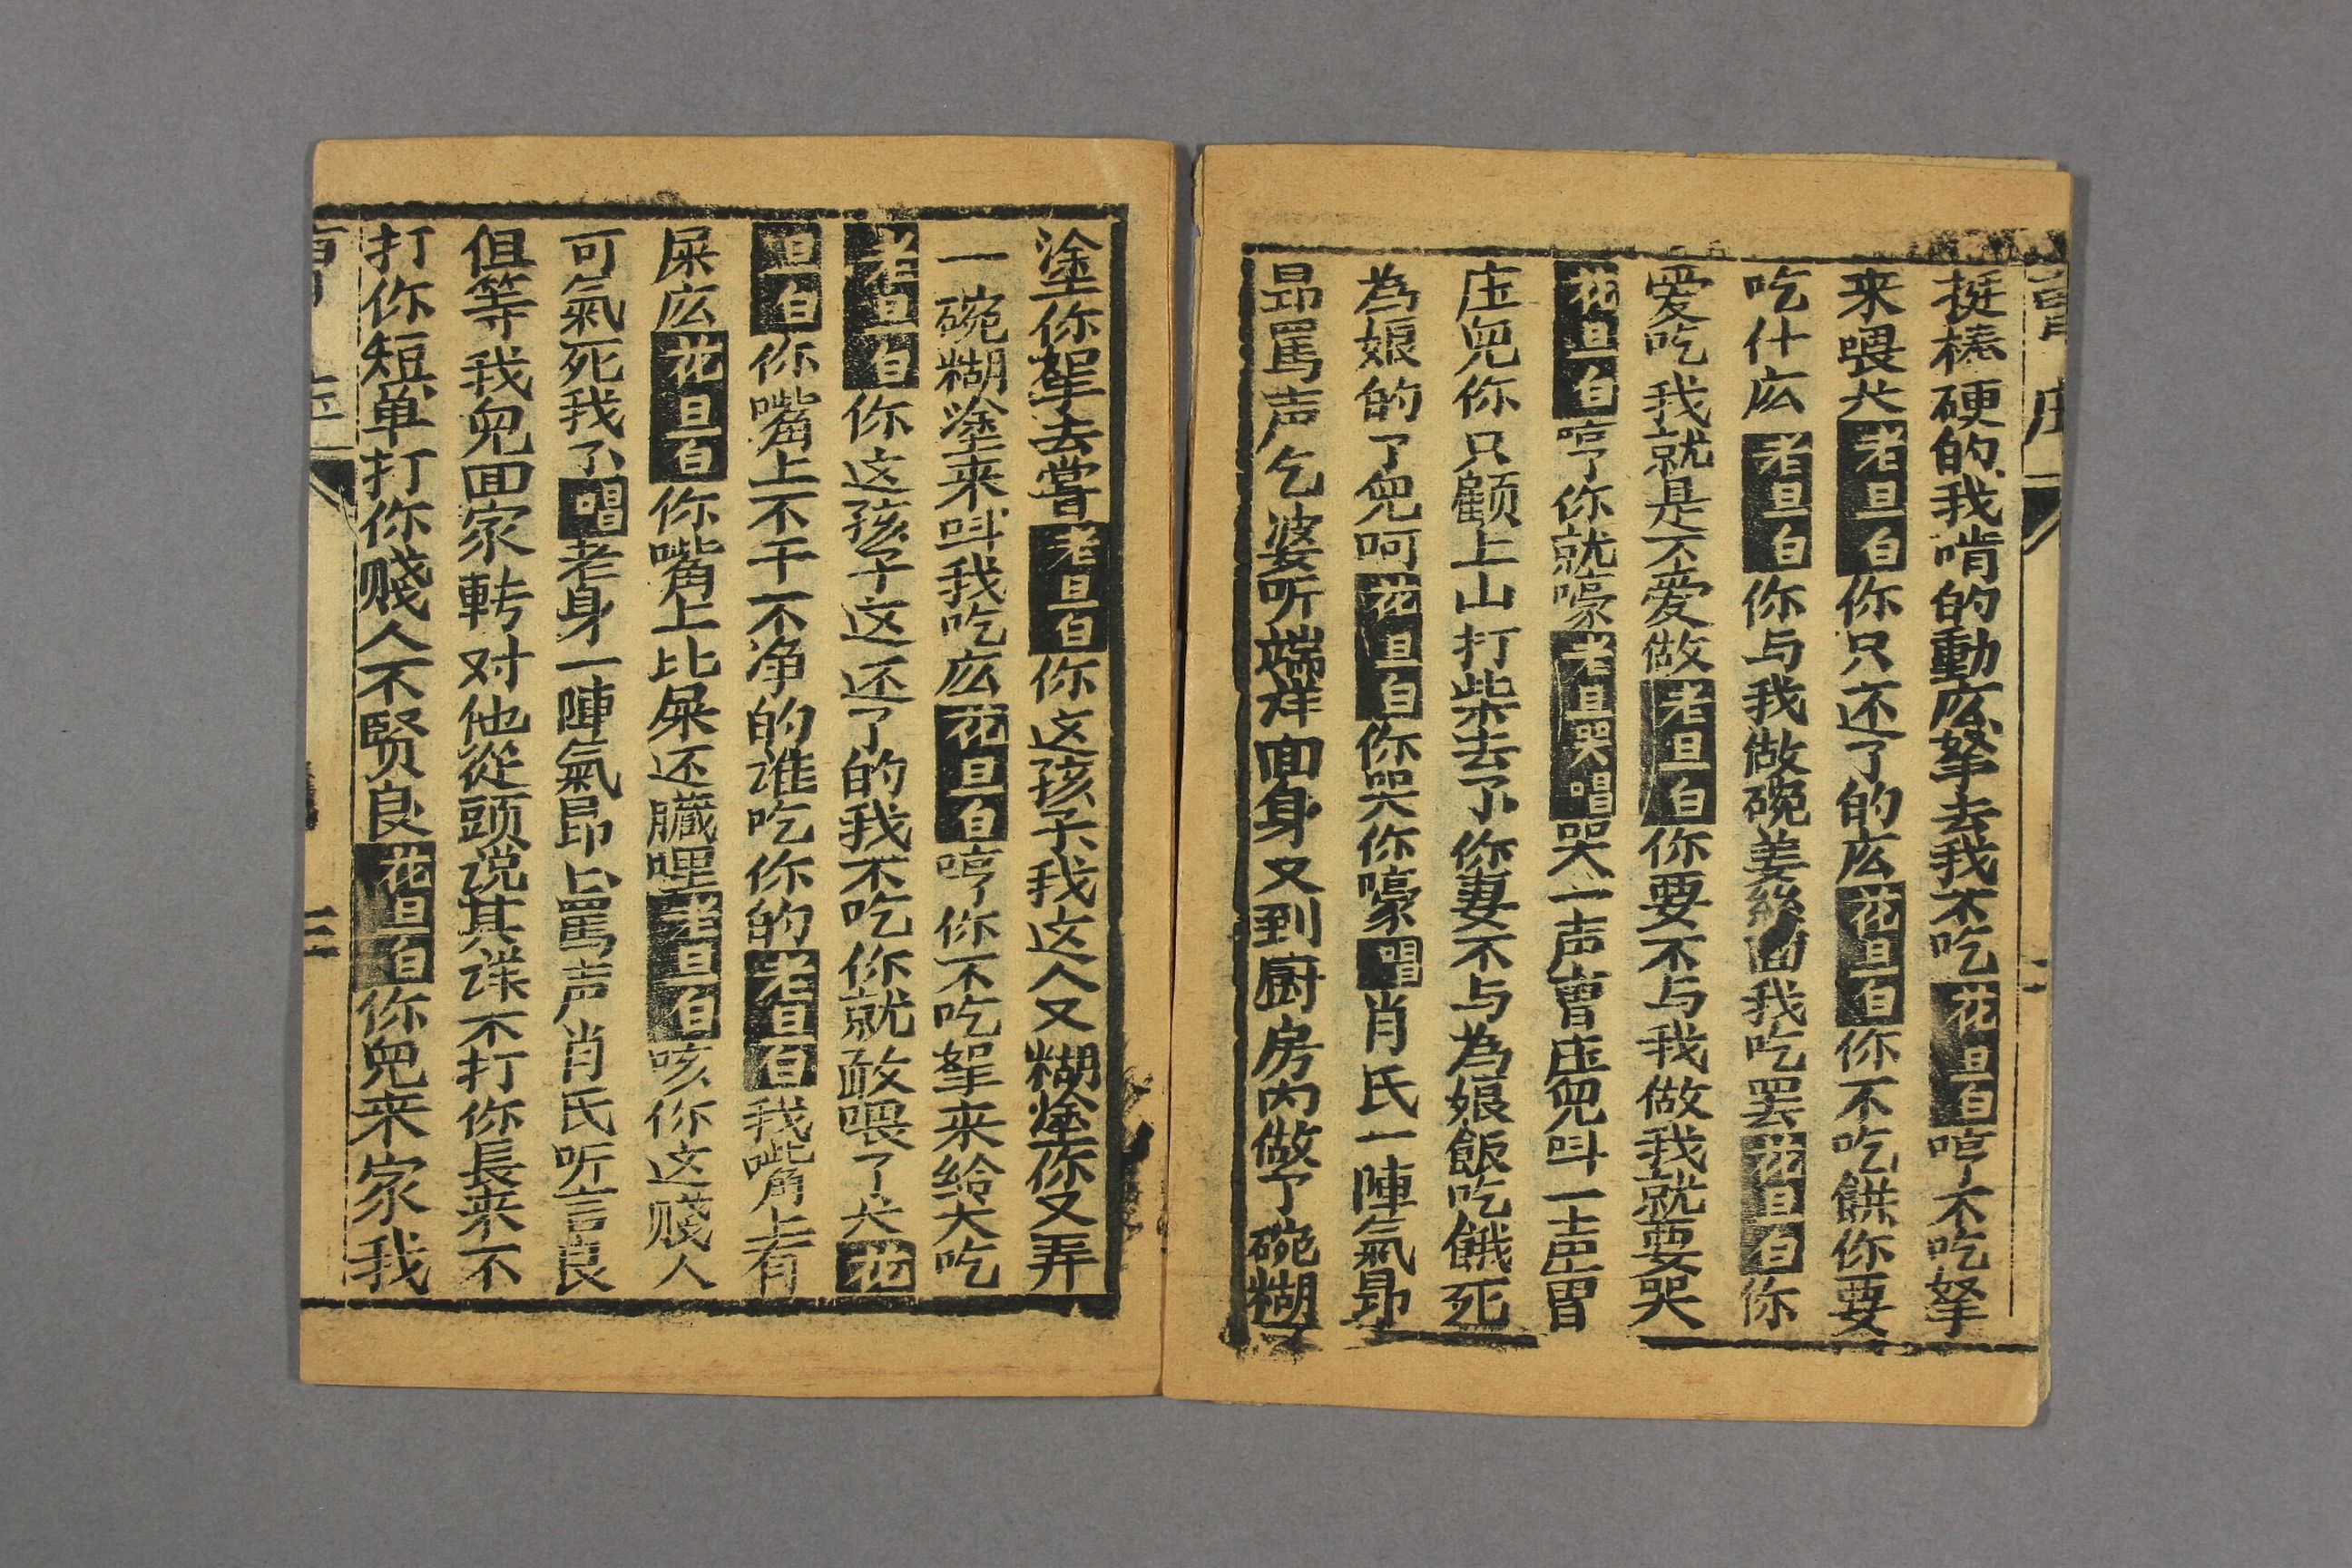 挺棒硬的我啃的動庅拏去我不吃花旦白哼不吃拏
来喂犬老旦白你只还了的庅花旦白你不吃餅你要
吃什庅老旦白你与我做碗姜絲面我吃罢花旦白你
爱吃我就是不爱做老旦白你要不与我做我就要哭
花旦白哼你就嚎老旦哭唱哭一声曹庄兜呌一声曹
庄兜你只顾上山打柴去了你妻不与為娘飯吃餓死
為娘的了兜呵花旦白你哭你嚎唱肖氏一陣氣昂
昂罵声乞婆听端祥回身又到厨房内做了碗糊
塗你拏去嘗老旦白你这孩子我这人又糊塗你又弄
一碗糊塗来呌我吃庅花旦白哼你不吃拏来給犬吃
老旦白你这孩子这还了的我不吃你就敢喂了犬花
旦白你嘴上不干不净的谁吃你的老旦白我嘴上有
屎庅花旦白你嘴上比屎还臟哩老旦白咳你这賤人
可氣死我了唱老身一陣氣昂上罵声肖氏听言良
但等我兜回家轉对他從頭说其详不打你長来不
打你短单打你賤人不贤良花旦白你兜来家我
三